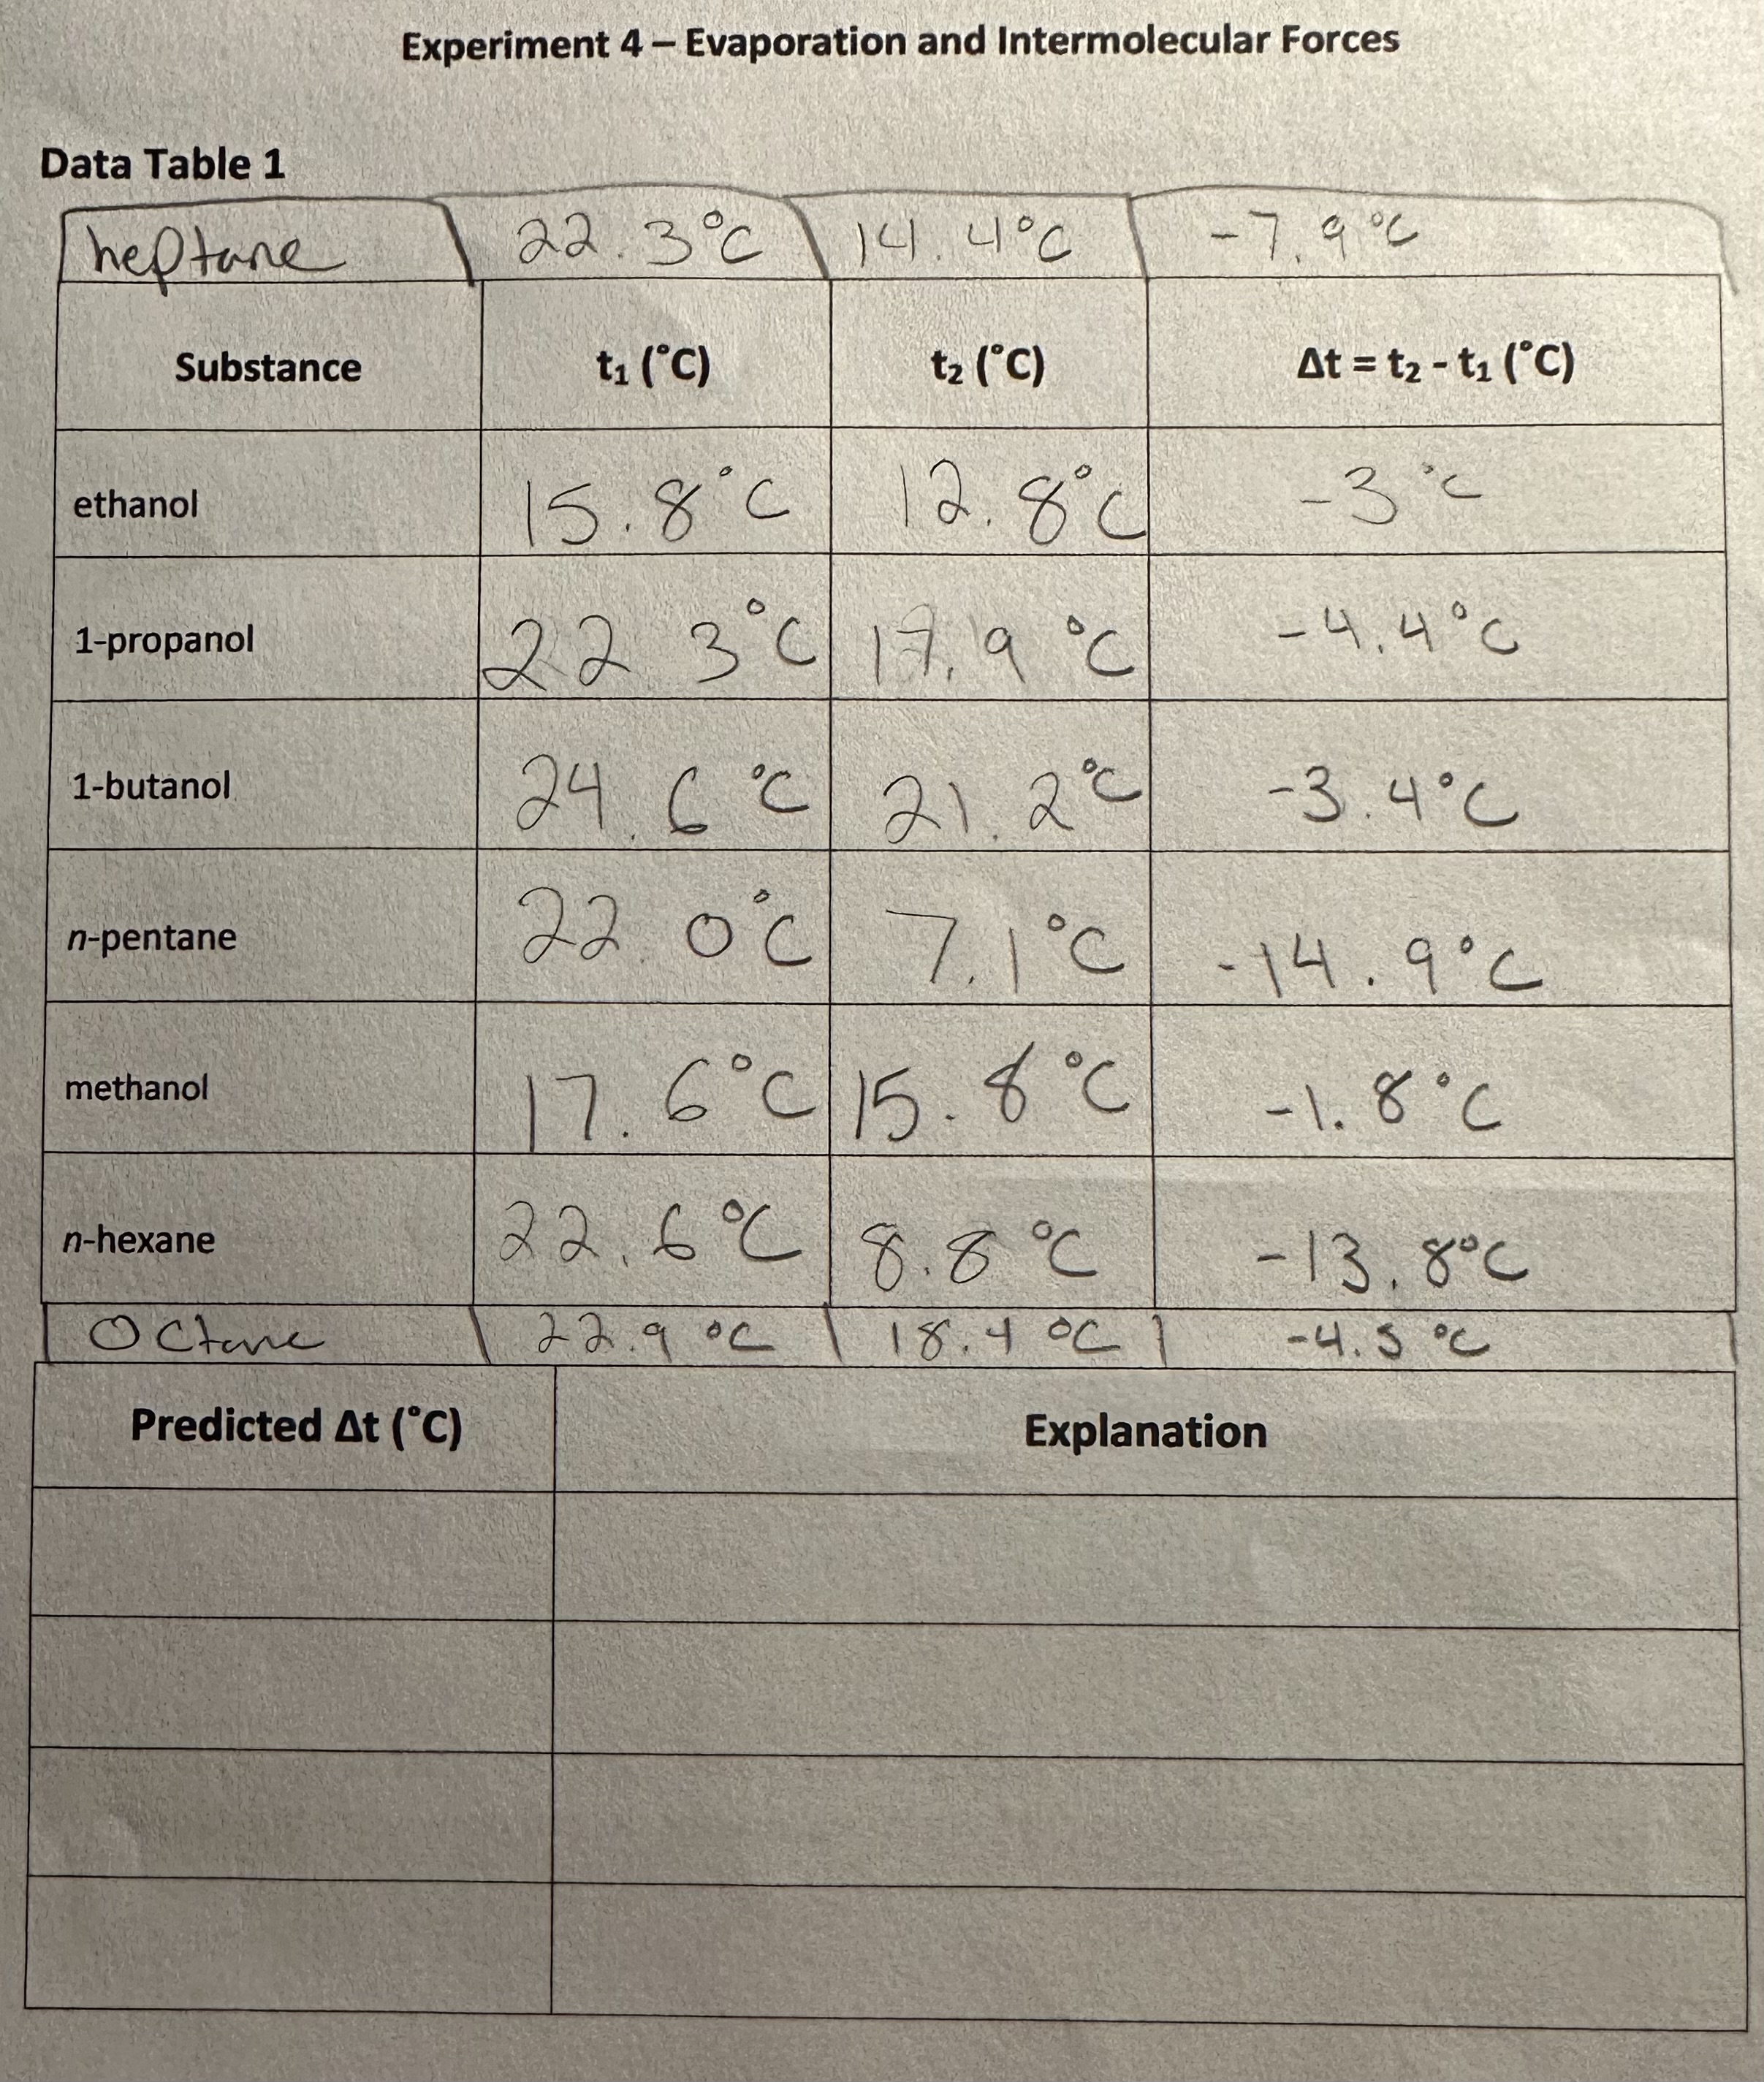 Experiment 4 – Evaporation and Intermolecular Forces
Data Table 1
heptane 22.3°C 14.4°C -7.9°C
Substance t₁ (˚C) t₂ (˚C) Δt = t₂ - t₁ (˚C)
ethanol 15.8°C 12.8°C -3°C
1-propanol 22 3°C 17.9 °C -4.4°C
1-butanol 24.6 °C 21.2°C -3.4°C
n-pentane 22.0°C 7.1°C -14.9°C
methanol 17.6°C 15.8°C -1.8°C
n-hexane 22.6°C 8.8°C -13.8°C
Octane 22.9 °C 18.4 °C -4.5 °C
Predicted Δt (˚C) Explanation